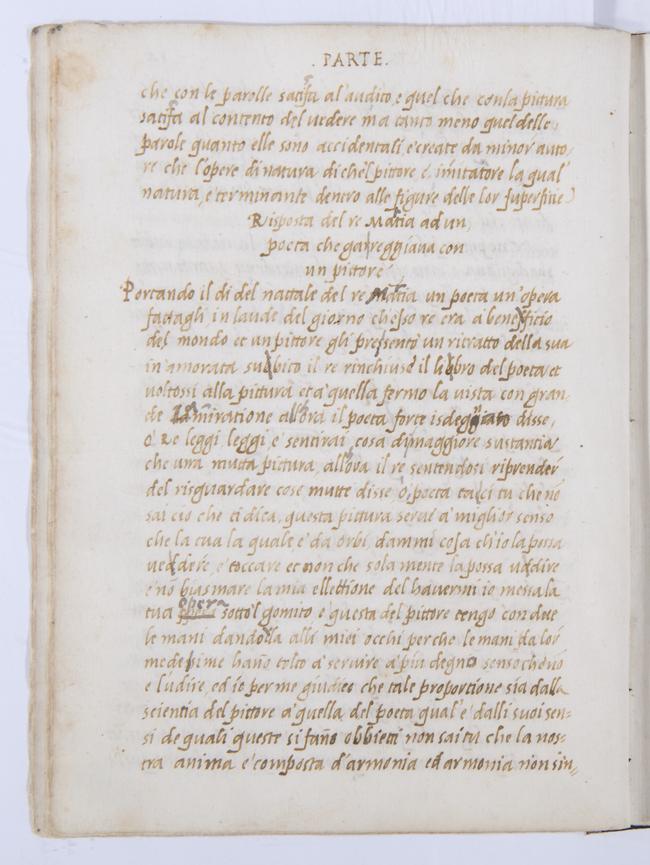 . PARTE .
che con le parolle satisfa al audito, e quel che con la pittura
satisfa al contento del vedere ma tanto meno quel delle
parole quanto elle sono accidentali, e create da minor auto
re che l'opere di natura di che'l pittore é imitatore la qual
natura, e terminante dentro alle figure delle lor superfitie
Risposta del re Mattia ad un
poeta che gareggiava con
un pittore
Portando il di del nattale del re Mattia un poeta un'opera
fattagli in laude del giorno che esso re era a benefficio
del mondo et un pittore gli presento un ritratto della sua
in'amorata subbito il re rinchiuso il libbro del poeta et
voltossi alla pittura et a quella fermo la vista con gran
de admiratione allora il poeta forte isdeggiato disse,
o' Re leggi leggi e' sentirai cosa di maggiore sustantia
che una mutta pittura, allora il re sentendosi riprender
del risguardare cose mutte disse o' poeta tacci tu che nō
sai ciò che ti dica, questa pittura serve a' miglior senso
che la tua la quale e' da orbi, dammi cosa ch'io la possa
veddere, e' toccare et non che sola mente la possa uddire
e' nō biasmare la mia ellettione del havermi io messa la
tua opera sotto'l gomito e questa del pittore tengo con dete
le mani dandola alli miei occhi perche le mani da lor
medesime hano tolto a' servire a' piu degno senso che nō
e l'udire, ed io per me giudico che tale proportione sia dalla
scientia del pittore a' quella del poeta qual'e' dalli suoi sen=
si de quali queste si fano obbietti non sai tu che la nos-
tra anima e' composta d'armonia ed armonia non s'in=